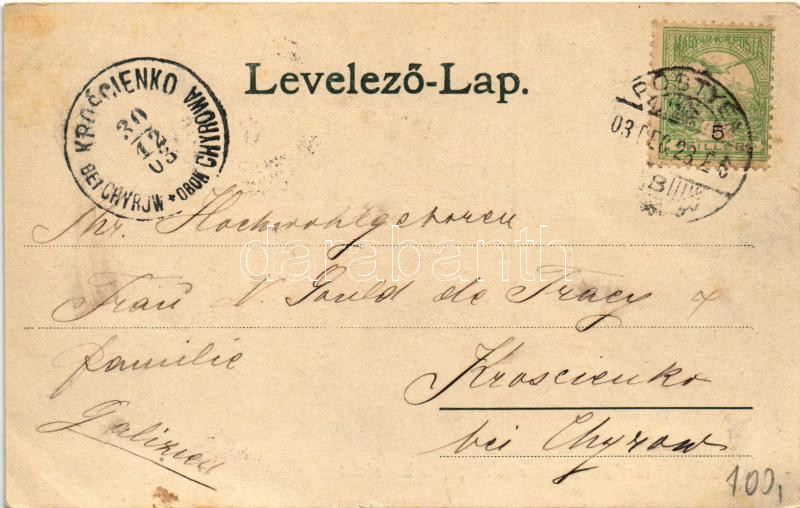 Levelező-Lap.
MAGYAR KIR. POSTA
5
PÖSTYÉN
03 DEC. 28
B
KROŚCIENKO OBOK CHYROWA * BEI CHYRÓW
30
12
03
Ihr. Hochwohlgeboren
darabanth
Frau N. Gould de Tracy
familie
Kroscienko
Galizien
bei Chyrow
100,